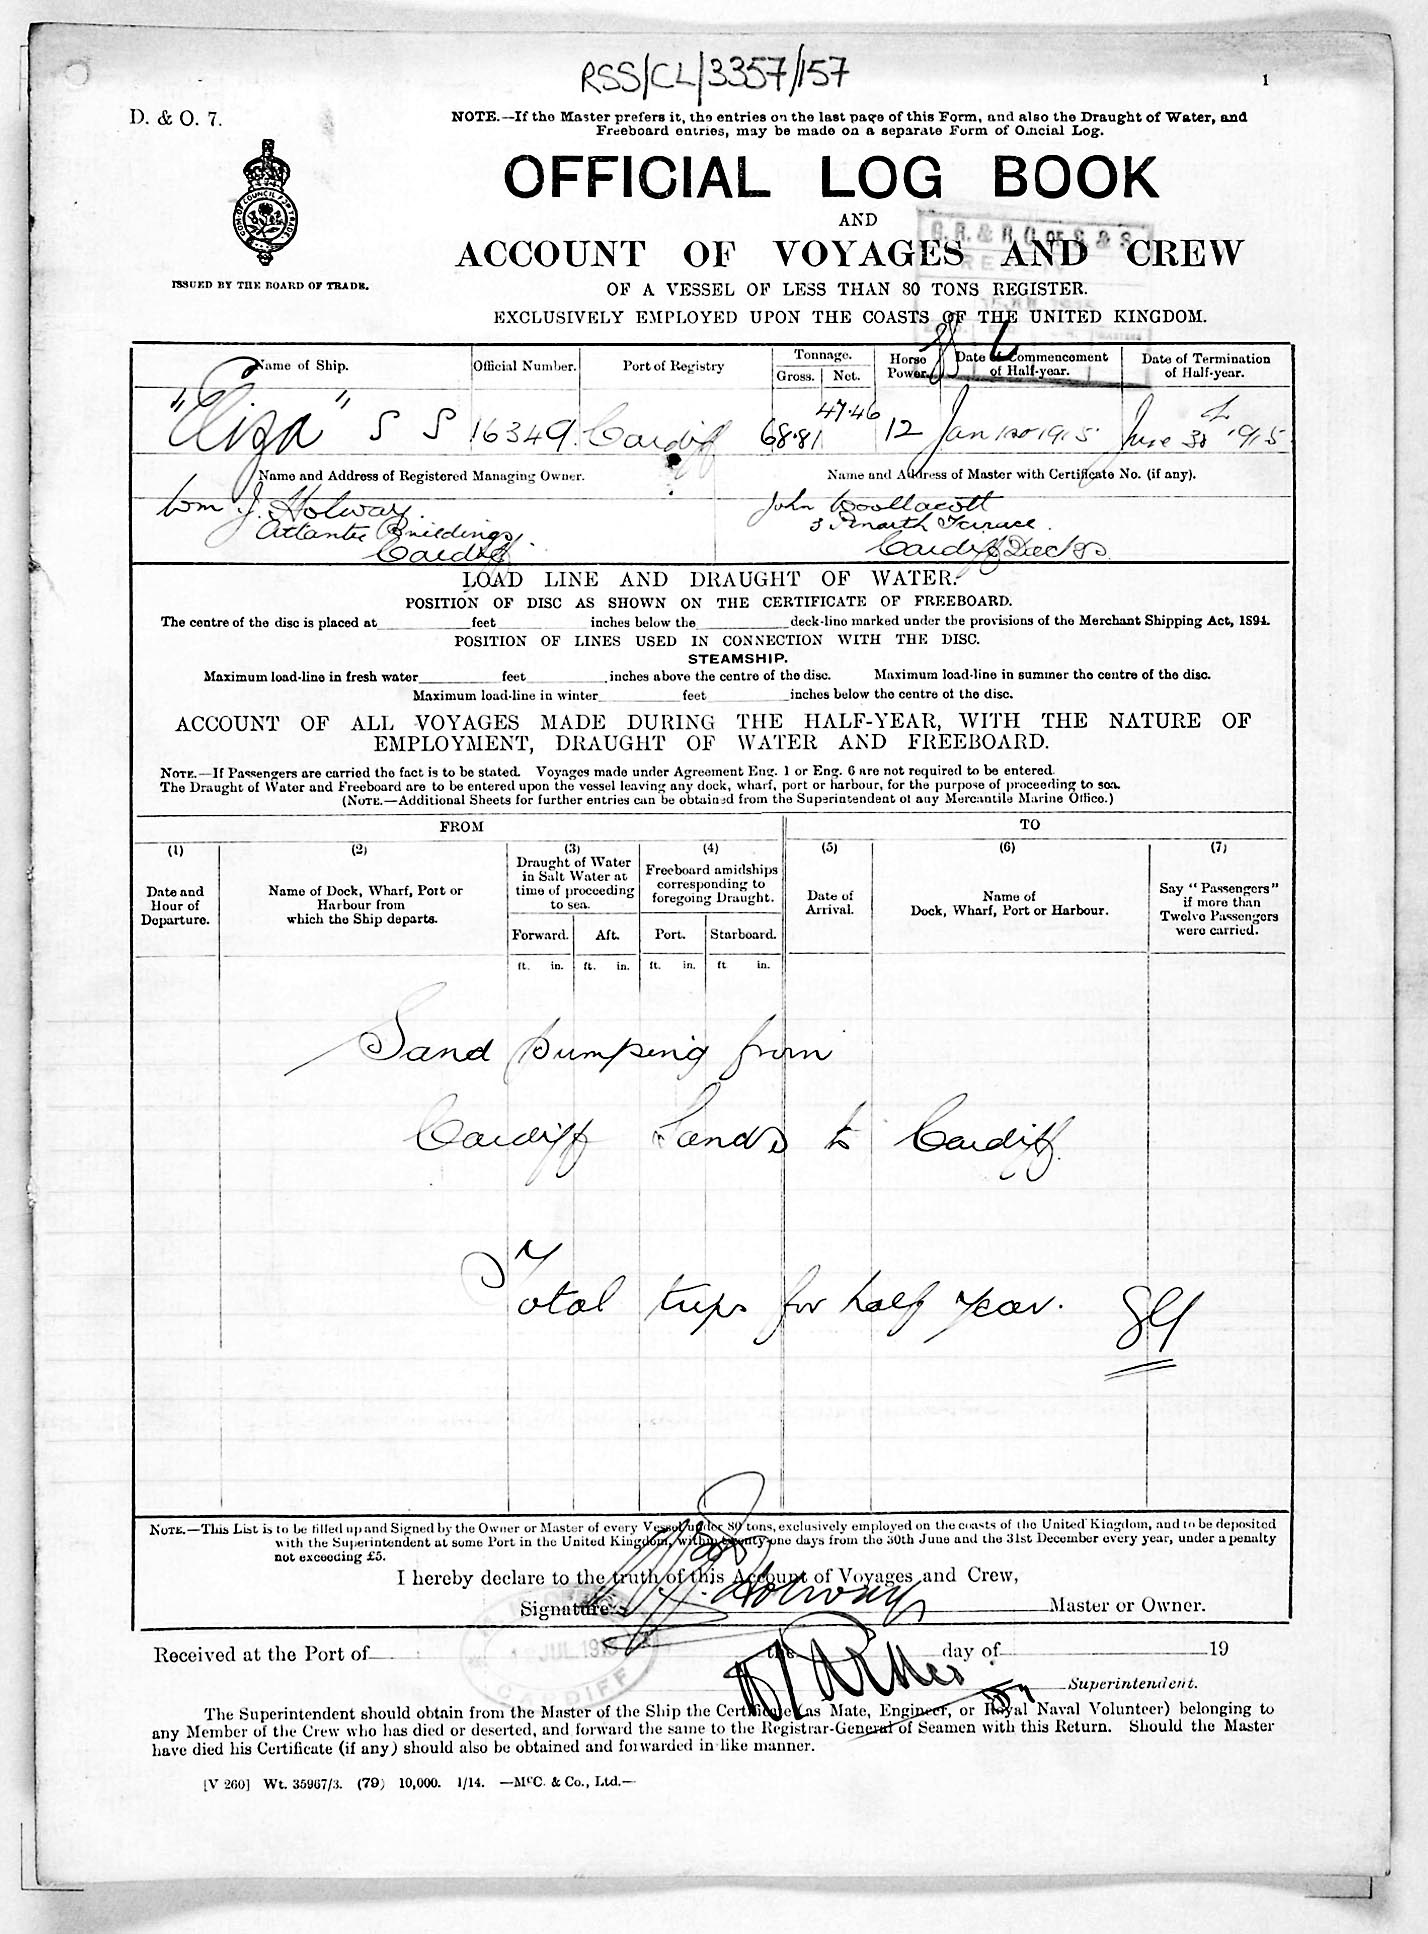 RSS/CL/3357/157
1
D. & O. 7.
NOTE.—If the Master prefers it, the entries on the last page of this Form, and also the Draught of Water, and
Freeboard entries, may be made on a separate Form of Official Log.
OFFICIAL LOG BOOK
AND
ACCOUNT OF VOYAGES AND CREW
OF A VESSEL OF LESS THAN 80 TONS REGISTER.
EXCLUSIVELY EMPLOYED UPON THE COASTS OF THE UNITED KINGDOM.
ISSUED BY THE BOARD OF TRADE.
Name of Ship. Official Number. Port of Registry Tonnage. Gross. Net. Horse Power. Date of Commencement of Half-year. Date of Termination of Half-year.
"Eliza" S S 16349 Cardiff 68.81 47.46 12 Jan 1st 1915 June 30 1915
Name and Address of Registered Managing Owner. Name and Address of Master with Certificate No. (if any).
Wm J. Holway John Woollacott
Atlantic Buildings 3 Penarth Terrace
Cardiff Cardiff Docks
LOAD LINE AND DRAUGHT OF WATER.
POSITION OF DISC AS SHOWN ON THE CERTIFICATE OF FREEBOARD.
The centre of the disc is placed at feet inches below the deck-line marked under the provisions of the Merchant Shipping Act, 1894.
POSITION OF LINES USED IN CONNECTION WITH THE DISC.
STEAMSHIP.
Maximum load-line in fresh water feet inches above the centre of the disc. Maximum load-line in summer the centre of the disc.
Maximum load-line in winter feet inches below the centre of the disc.
ACCOUNT OF ALL VOYAGES MADE DURING THE HALF-YEAR, WITH THE NATURE OF
EMPLOYMENT, DRAUGHT OF WATER AND FREEBOARD.
NOTE.—If Passengers are carried the fact is to be stated. Voyages made under Agreement Eng. 1 or Eng. 6 are not required to be entered.
The Draught of Water and Freeboard are to be entered upon the vessel leaving any dock, wharf, port or harbour, for the purpose of proceeding to sea.
(NOTE.—Additional Sheets for further entries can be obtained from the Superintendent of any Mercantile Marine Office.)
FROM TO
(1) (2) (3) (4) (5) (6) (7)
Date and Hour of Departure.
Name of Dock, Wharf, Port or Harbour from which the Ship departs.
Draught of Water in Salt Water at time of proceeding to sea.
Freeboard amidships corresponding to foregoing Draught.
Date of Arrival.
Name of Dock, Wharf, Port or Harbour.
Say "Passengers" if more than Twelve Passengers were carried.
Forward. Aft. Port. Starboard.
ft. in. ft. in. ft. in. ft in.
Sand pumping from
Cardiff Sands to Cardiff.
Total trips for half year. 84
NOTE.—This List is to be filled up and Signed by the Owner or Master of every Vessel under 80 tons, exclusively employed on the coasts of the United Kingdom, and to be deposited
with the Superintendent at some Port in the United Kingdom, within twenty-one days from the 30th June and the 31st December every year, under a penalty
not exceeding £5.
I hereby declare to the truth of this Account of Voyages and Crew,
Signature W. J. Holway Master or Owner.
Received at the Port of the day of 19
JUL 1915
CARDIFF
Superintendent.
The Superintendent should obtain from the Master of the Ship the Certificate (as Mate, Engineer, or Royal Naval Volunteer) belonging to
any Member of the Crew who has died or deserted, and forward the same to the Registrar-General of Seamen with this Return. Should the Master
have died his Certificate (if any) should also be obtained and forwarded in like manner.
[V 260] Wt. 35967/3. (79) 10,000. 1/14. —McC. & Co., Ltd.—